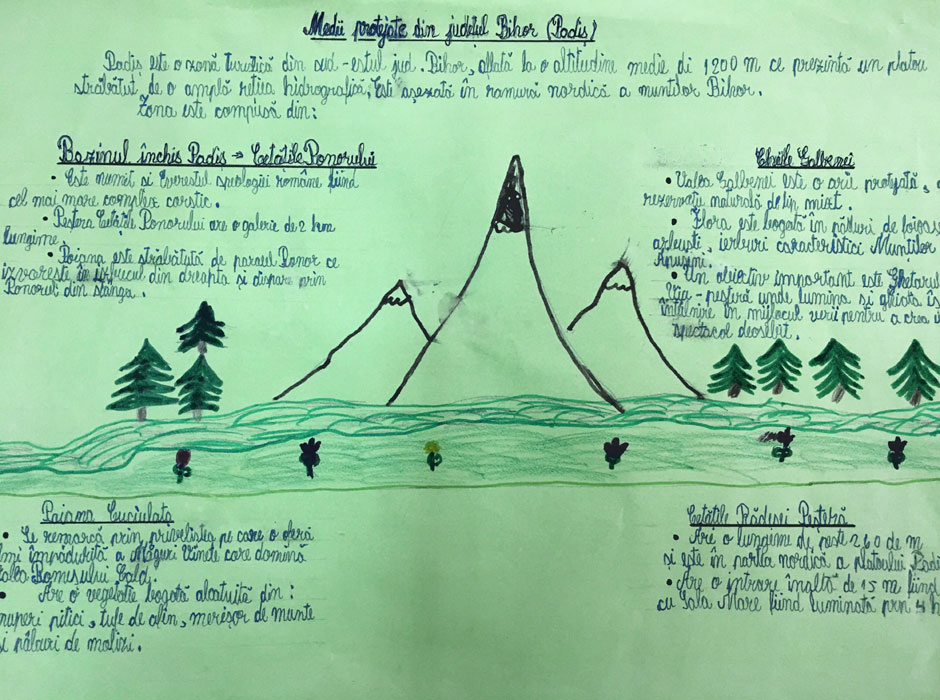 Medii protejate din județul Bihor (Padis)
Padis este o zonă turistică din sud-estul jud. Bihor, aflată la o altitudine medie di 1200 m ce prezintă un platou
străbătut de o amplă retia hidrografică. Este așezată în ramură nordică a muntilor Bihor.
Zona este compusă din:
Bazinul închis Padis → Cetățile Ponorului
• Este numit si Everestul speologiei române fiind
cel mai mare complex carstic.
• Peștera Cetățile Ponorului are o galerie de 2 km
lungime.
• Poiana este străbătută de paraul Ponor ce
izvoreste în izbucul din dreapta și dispare prin
Ponorul din stânga.
Cheile Galbenei
• Valea Galbenei este o arii protejată, o
rezervație naturală de tip mixt.
• Flora este bogată în păduri de foioase
arbuști, ierburi caracteristici Muntilor
Apuseni.
• Un obiectiv important este Ghetarul
Viu - peșteră unde lumina si ghiata îs
întâlnire în mijlocul verii pentru a crea u
spectacol deosebit.
Paiana Cuciulata
• Se remarcă prin privelistea pe care o oferă
lmi împădurită a Măguri Vânăte care domină
alea Someșului Cald.
• Are o vegetatie bogată alcatuită din:
nuperi pitici, tufe de afin, merișor de munte
și pâlcuri de molizi.
Cetățile Rădesei Peșteră
• Are o lungime de peste 260 de m
si este în partea nordică a platoului Padi
• Are o intrare înaltă de 15 m fiind
cu Sala Mare fiind luminată prin 4 h